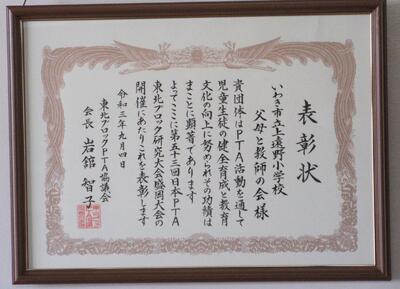 表彰状
いわき市立上遠野小学校
父母と教師の会様
貴団体はPTA活動を通して
児童生徒の健全育成と教育
文化の向上に努められその功績は
まことに顕著であります
よってここに第五十三回日本PTA
東北ブロック研究大会盛岡大会の
開催にあたりこれを表彰します
令和三年九月四日
東北ブロックPTA協議会
会長 岩舘 智子